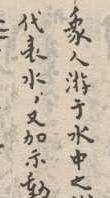 象人游于水中之
代表水，又加示動